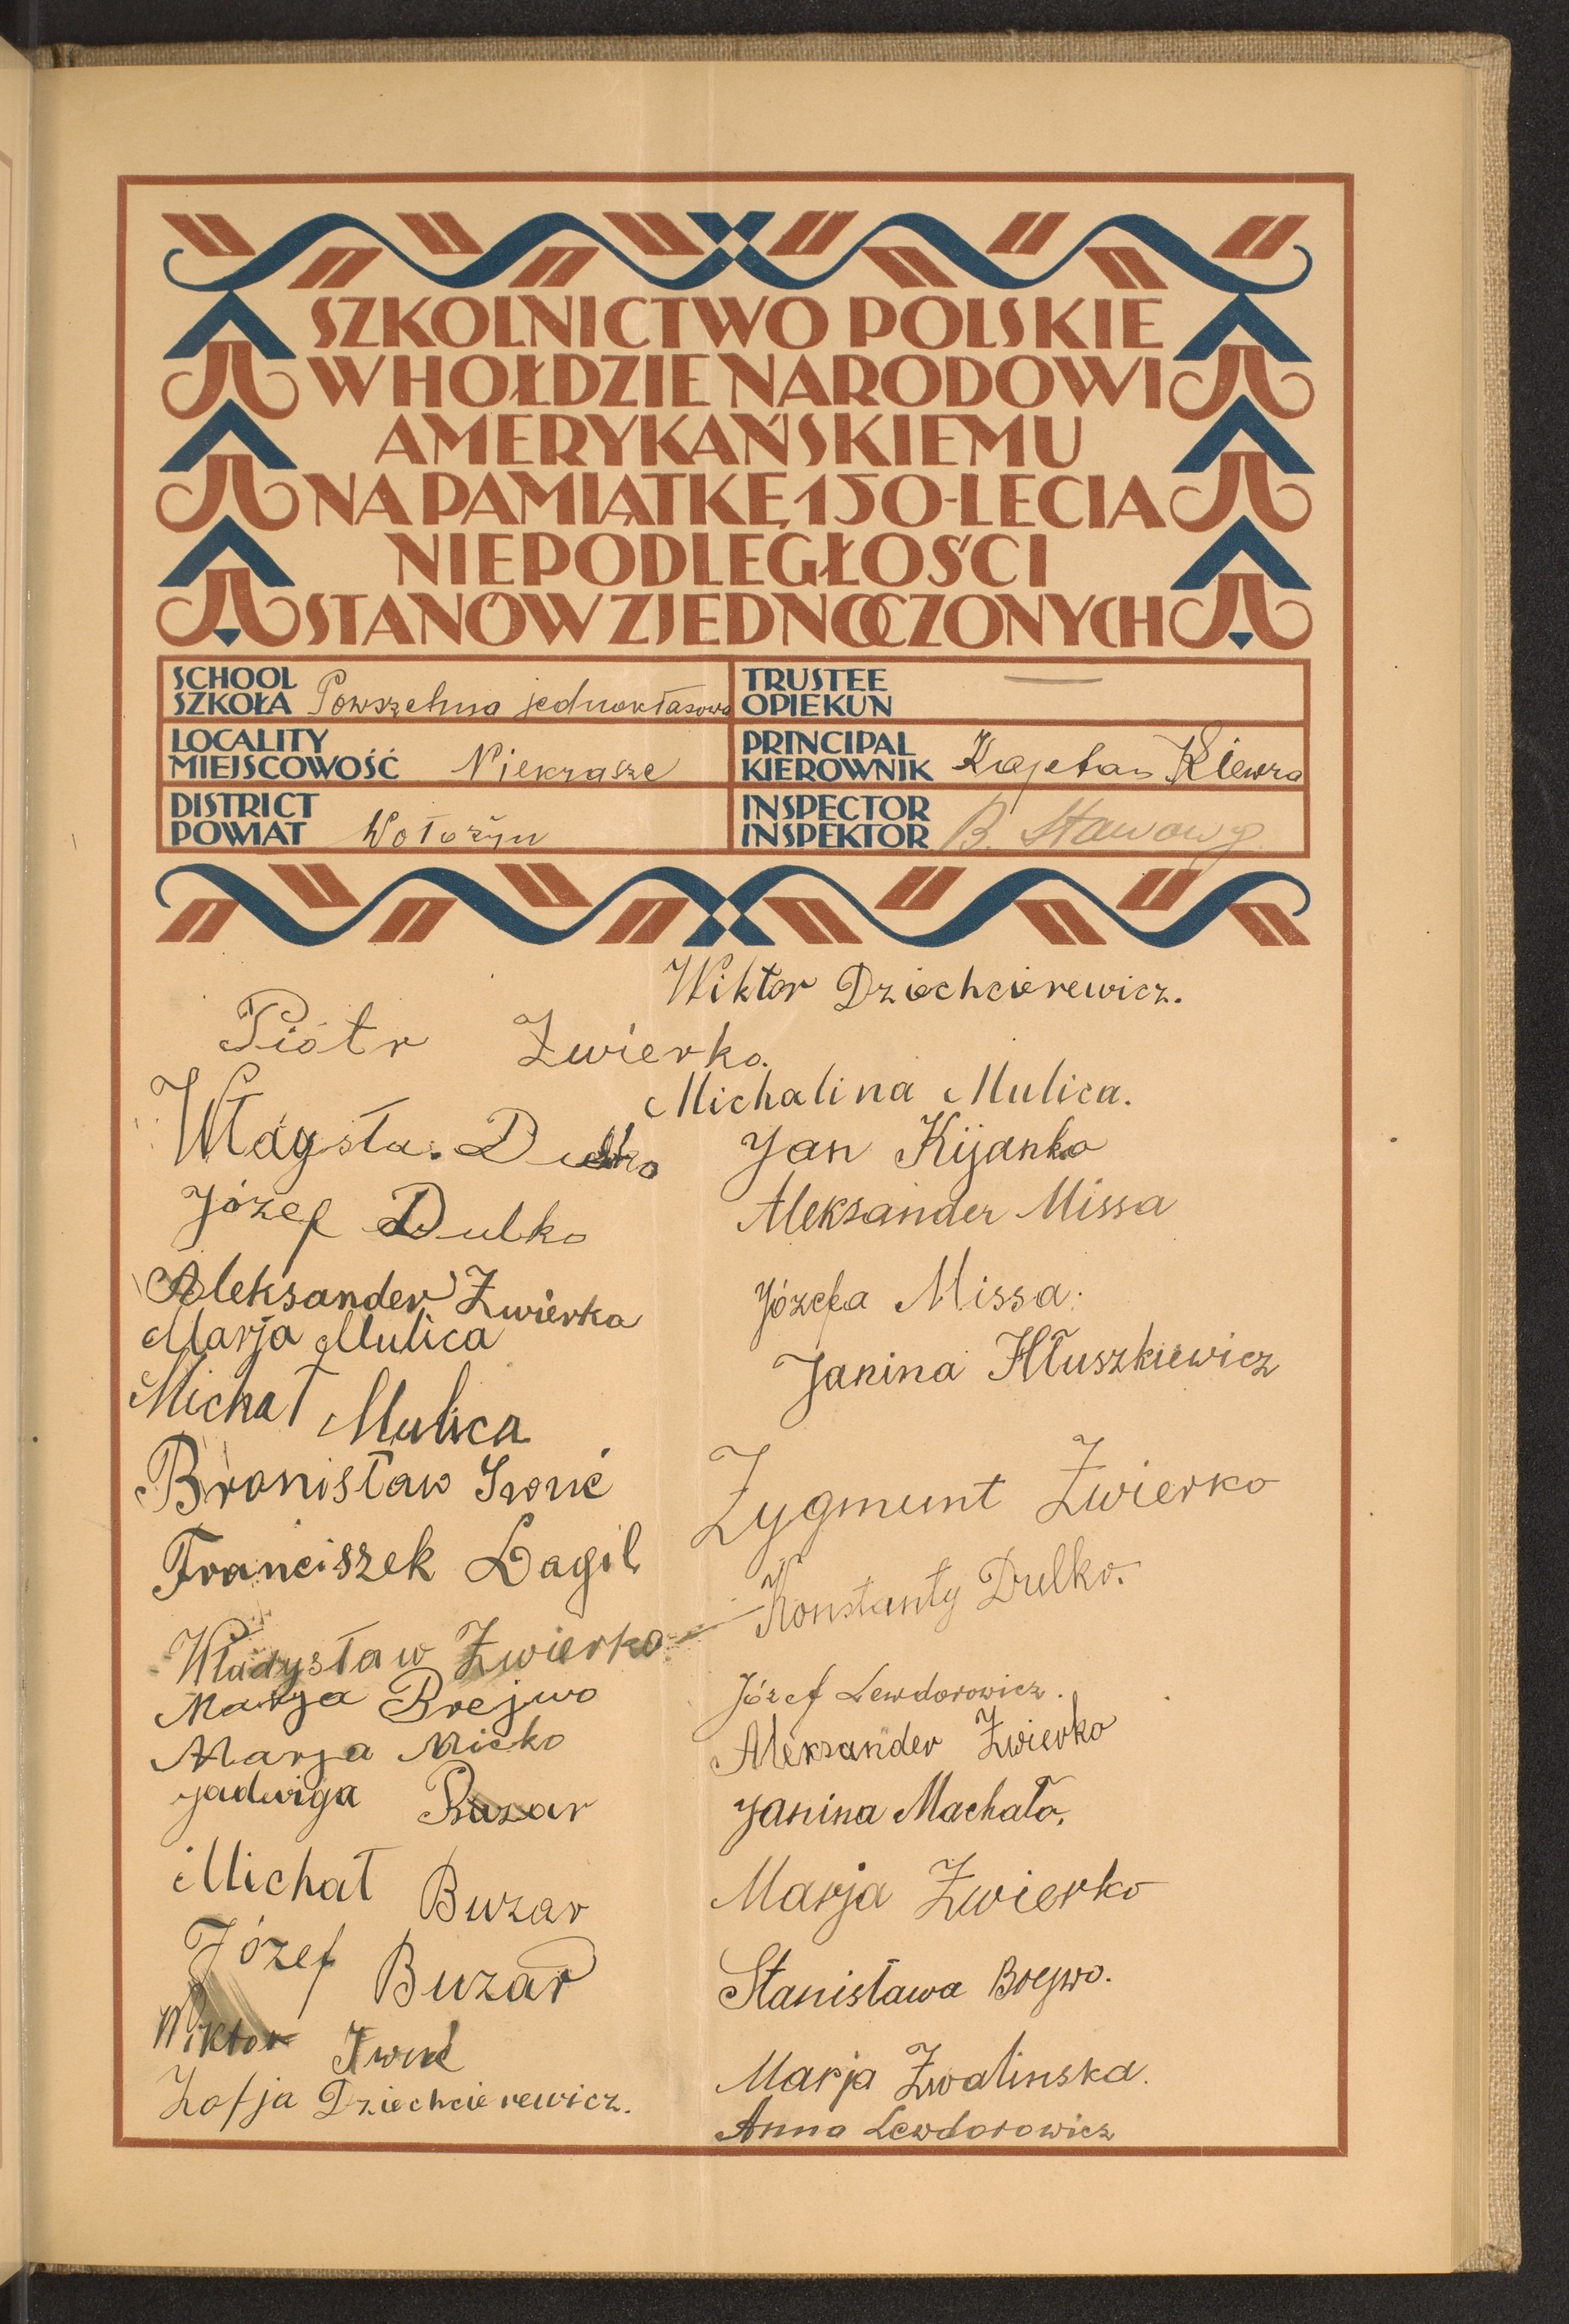 SZKOLNICTWO POLSKIE
W HOŁDZIE NARODOWI
AMERYKAŃSKIEMU
NA PAMIĄTKĘ 150-LECIA
NIEPODLEGŁOŚCI
STANÓW ZJEDNOCZONYCH
SCHOOL
SZKOŁA Powszechna jednoklasowa
TRUSTEE
OPIEKUN
LOCALITY
MIEJSCOWOŚĆ Niekrasze
PRINCIPAL
KIEROWNIK Kajetan Klewra
DISTRICT
POWIAT Wołożyn
INSPECTOR
INSPEKTOR B. Stawowy
Wiktor Dziechcierewicz.
Piótr Zwierko.
Michalina Mulica.
Włdysła. Dulko
Józef Dulko
Aleksander Zwierka
Marja Mulica
Michał Mulica
Bronisław Iwuć
Franciszek Łagil
Władysław Zwierko
Marja Brejwo
Marja Micko
Jadwiga Buzar
Michał Buzar
Józef Buzar
Wiktor Iwuć
Zofja Dziechcierewicz.
Jan Kijanko
Aleksander Missa
Józefa Missa.
Janina Hłuszkiewicz
Zygmunt Zwierko
Konstanty Dulko.
Józef Lewdorowicz.
Aleksander Zwierko
Janina Machało.
Marja Zwierko
Stanisława Brejwo.
Marja Zwalinska.
Anna Lewdorowicz